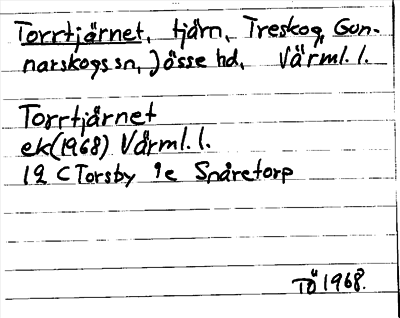 Torrtjärnet, tjärn, Treskog, Gun-
narskogs sn, Jösse hd, Värml. l.
Torrtjärnet
ek(1968) Värml. l.
12 C Torsby 9e Snäretorp
TÖ 1968.